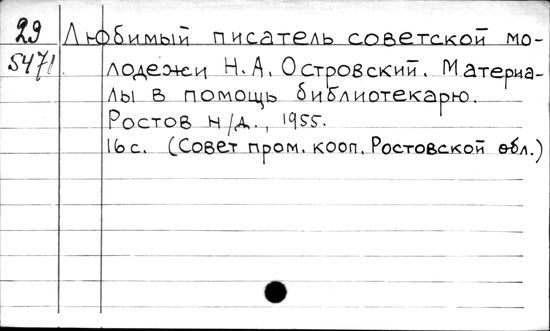 29 Любимый писатель советской мо-
5471 лодежи Н.А. Островский. Материа-
лы в помощь библиотекарю.
Ростов н/Д., 1955.
16 с. (Совет пром. кооп. Ростовской обл.)